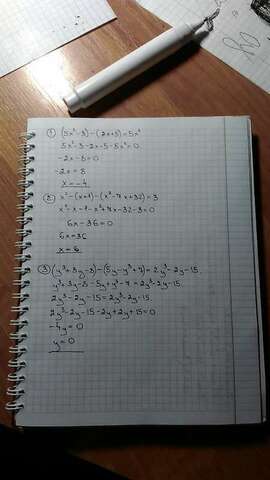 1) (5x²-3)-(2x+5)=5x²
5x²-3-2x-5-5x²=0
-2x-8=0
-2x=8
x=-4
2. x²-(x+1)-(x²-7x+32)=3
x²-x-1-x²+7x-32-3=0
6x-36=0
6x=36
x=6
3) (y³+3y-8)-(5y-y³+7)=2y³-2y-15
y³+3y-8-5y+y³-7=2y³-2y-15
2y³-2y-15=2y³-2y-15
2y³-2y-15-2y+2y+15=0
-4y=0
y=0